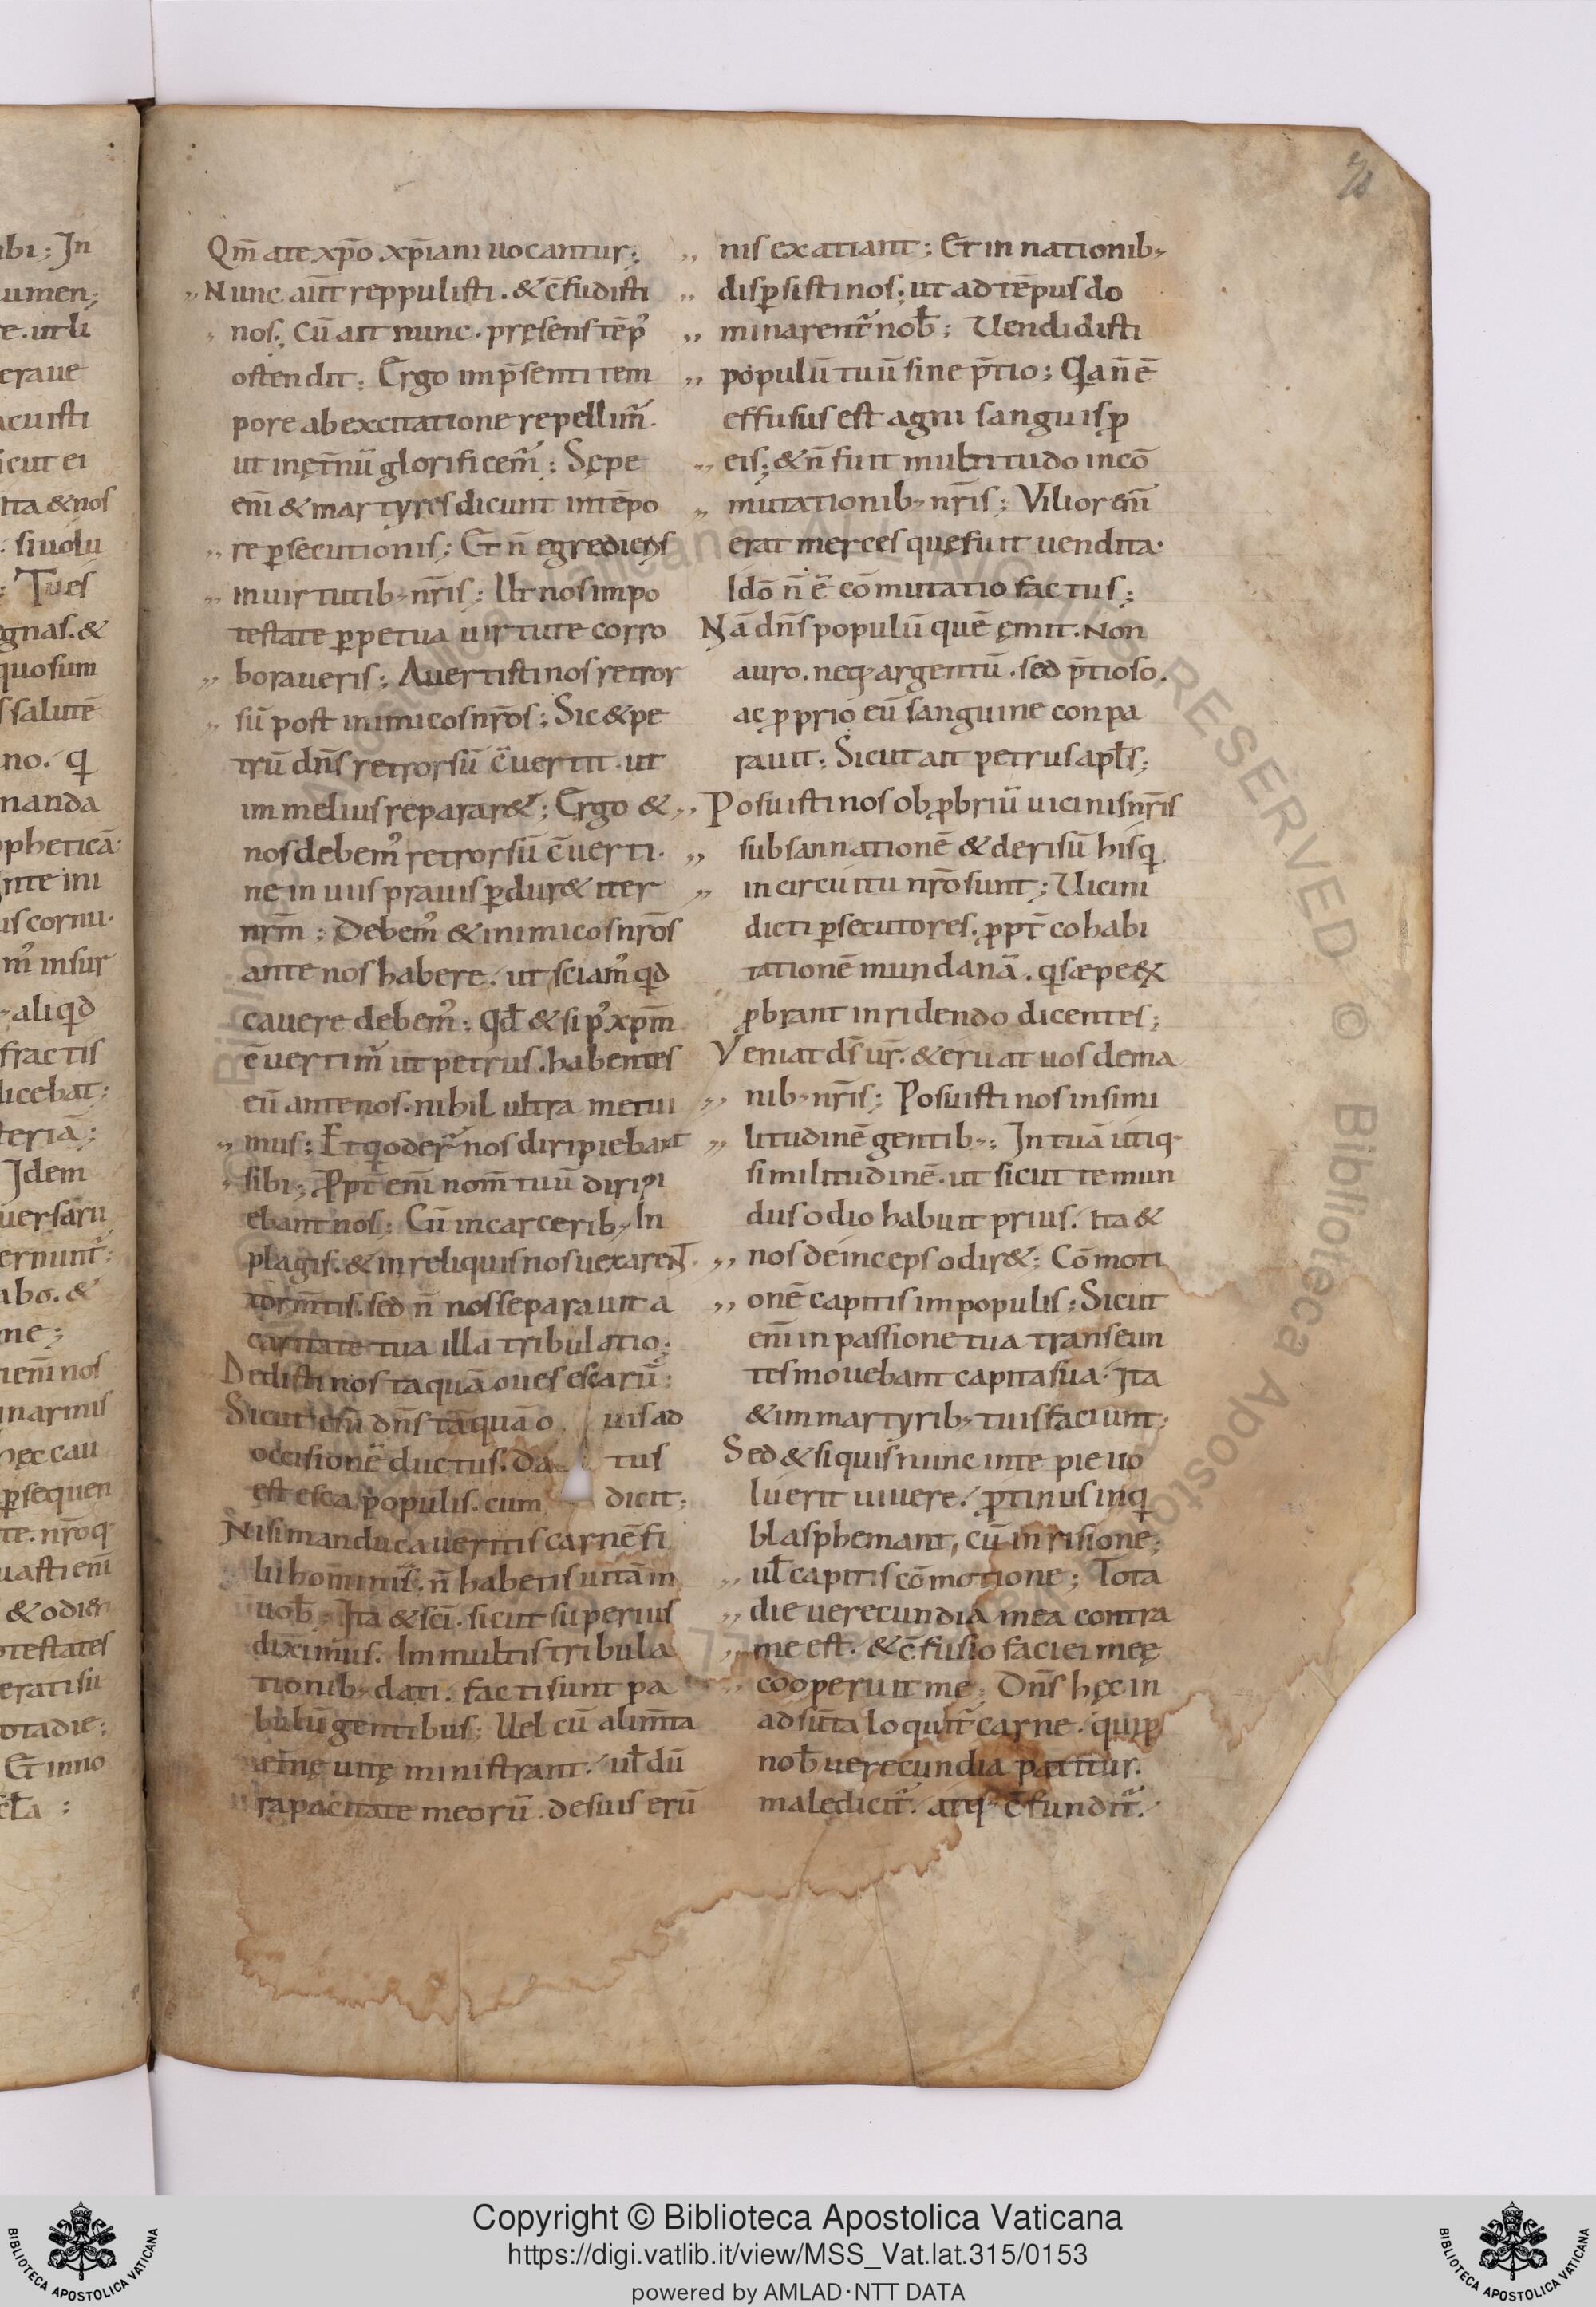 ibi; In
umen;
e. ut li
eraue
acuisti
icut ei
ita & nos
. si uolu
: Tu es
egnas. &
quo sum
s salutē
no. q
nanda
opheticā
nte ini
us cornu.
m᷒ insur
aliqd
fractis
licebat;
teriā;
Idem
uersarii
ernunt᷒;
abo. &
me;
enī nos
in armis
hęc cau
psequen
te. nrōq
uasti enī
& odien
otestates
erati su
ota die;
Et inno
eła ;
70
Qm̄ a te xp̄o. xp̄iani uocantur;
Nunc aūt reppulisti. & c̄fudisti
nos; Cū ait nunc. pręsens tēp᷒
ostendit; Ergo im p̄senti tem
pore ab excitatione repellim᷒.
ut in ęt̄nū glorificem᷒; Sępe
enī & martyres dicunt in tēpo
re psecutionis; Et n̄ egrediens
in uirtutib; nr̄is; Ut nos im po
testate ppetua uirtute corro
boraueris; Auertisti nos retror
sū post inimicos nrōs; Sic & pe
trū dn̄s retrorsū c̄uertit. ut
im melius reparar&; Ergo &
nos debem᷒ retrorsū c̄uerti.
ne in uiis prauis pdur& iter
nr̄m; Debem᷒ & inimicos nrōs
ante nos habere. ut sciam᷒ qd
cauere debem᷒; Qd & si p᷒ xp̄m
c̄uertim᷒ ut petrus. habentes
eū ante nos. nihil ultra metui
mus; Et q oder᷒ nos diripiebant
sibi; Ppt̄ enī nom̄ tuū diripi
ebant nos; Cū in carcerib; In
plagis. & in reliquis nos uexarent
torm̄tis. sed n̄ nos separauit a
caritate tua illa tribulatio;
Dedisti nos taquā oues escarū;
Sicut enī dn̄s tāquā o uis ad
occisionē ductus. da tus
est esca populis. cum dicit;
Nisi manducaueritis carnē fi
lii hominis. n̄ habetis uitā in
uoƀ; Ita & scī. sicut superius
diximus. Im multis tribula
tionib; dati. facti sunt pa
bulū gentibus; Uel cū alim̄ta
et̄nę uitę ministrant. uł dū
rapacitate meorū. de suis erū
nis exatiant; Et in nationib;
dispsisti nos; ut ad tēpus do
minarent᷒ noƀ; Uendidisti
populū tuū sine p̄tio; Qa n̄ ē
effusus est agni sanguis p
eis; & n̄ fuit multitudo in cō
mutationib; nr̄is; Vilior enī
erat merces quę fuit uendita.
Idō n̄ ē cōmutatio factus;
Nā dn̄s populū quē ęmit. Non
auro. neq; argentū. sed p̄tioso.
ac pprio eū sanguine conpa
rauit; Sicut ait petrus apłs;
Posuisti nos obpbriū uicinis nr̄is
subsannationē & derisū his q
in circuitu nrō sunt; Uicini
dicti psecutores. ppt̄ cohabi
tationē mundanā. q sæpe ex
pbrant inridendo dicentes;
Veniat ds̄ ur̄. & eruat uos de ma
nib; nr̄is; Posuisti nos in simi
litudinē gentib;; In tuā utiq;
similitudinē. ut sicut te mun
dus odio habuit prius. Ita &
nos deinceps odir&; Cōmoti
onē capitis im populis; Sicut
enī in passione tua transeun
tes mouebant capita sua. Ita
& im martyrib; tuis faciunt;
Sed & si quis nunc in te pie uo
luerit uiuere. ptinus in q
blasphemant, cū inrisione;
uł capitis cōmotione; Tota
die uerecundia mea contra
me est. & c̄fusio faciei meę
cooperuit me; Dn̄s hęc in
adsūta loquit᷒ carne. qui p
noƀ uerecundia patitur.
maledicit᷒. atq; c̄fundit᷒.
Copyright © Biblioteca Apostolica Vaticana
https://digi.vatlib.it/view/MSS_Vat.lat.315/0153
powered by AMLAD·NTT DATA
BIBLIOTECA APOSTOLICA VATICANA
BIBLIOTECA APOSTOLICA VATICANA